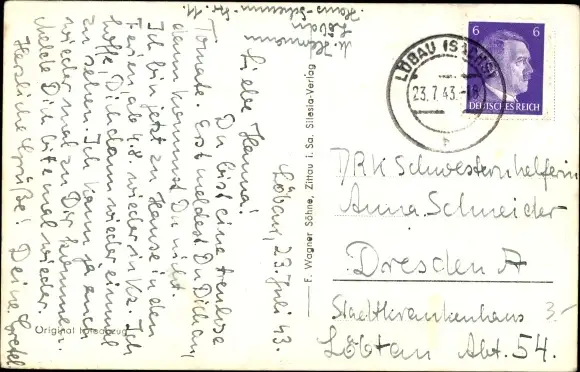 M. Hermann
Löbau
Hans-Schemm-Str. 11.
Löbau, 23. Juli 43.
Liebe Hanna!
Du bist eine treulose
Tomate. Erst meldest Du Dich an,
dann kommst Du nicht.
Ich bin jetzt zu Hause in den
Ferien, ab 4.8. wieder in Kz. Ich
hoffe, Dich dann wieder einmal
zu sehen. Ich kann ja auch
wieder mal zu Dir kommen.
Melde Dich bitte mal wieder.
Herzliche Grüße! Deine Gretel.
Original
F. Wagner Söhne, Zittau i. Sa. Silesia-Verlag
LÖBAU (SACHS)
23.7.43.-18
6 6
DEUTSCHES REICH
DRK Schwesternhelferin
Anna Schneider
Dresden A
Stadtkrankenhaus
Löbtau Abt. 54.
3.-